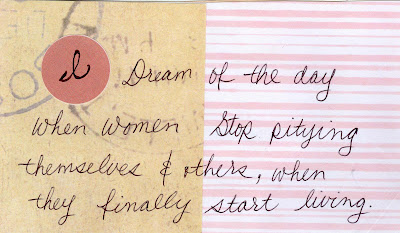 I Dream of the day
when women Stop pitying
themselves & others, when
they finally start living.